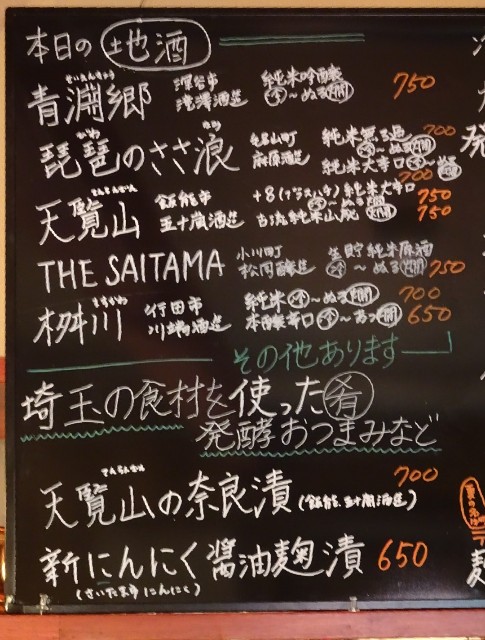 本日の 地酒
せいえんきょう
青淵郷 深谷市 滝澤酒造 純米吟醸 冷〜ぬる燗 750
びわ なみ
琵琶のささ浪 毛呂山町 麻原酒造 純米無ろ過 冷〜ぬる燗 700
純米大辛口 冷〜熱燗 700
てんらんざん
天覧山 飯能市 五十嵐酒造 +8(プラスハチ) 純米大辛口 冷〜ぬる燗 750
古流純米山廃 燗 750
THE SAITAMA 小川町 松岡醸造 生貯純米原酒 冷〜ぬる燗 750
ますかわ
桝川 行田市 川端酒造 純米 冷〜ぬる燗 700
本醸辛口 冷〜あつ燗 650
その他あります
埼玉の食材を使った肴
発酵おつまみなど
てんらんざん
天覧山の奈良漬 (飯能、五十嵐酒造) 700
新にんにく醤油麹漬 650
(さいたま市 にんにく)